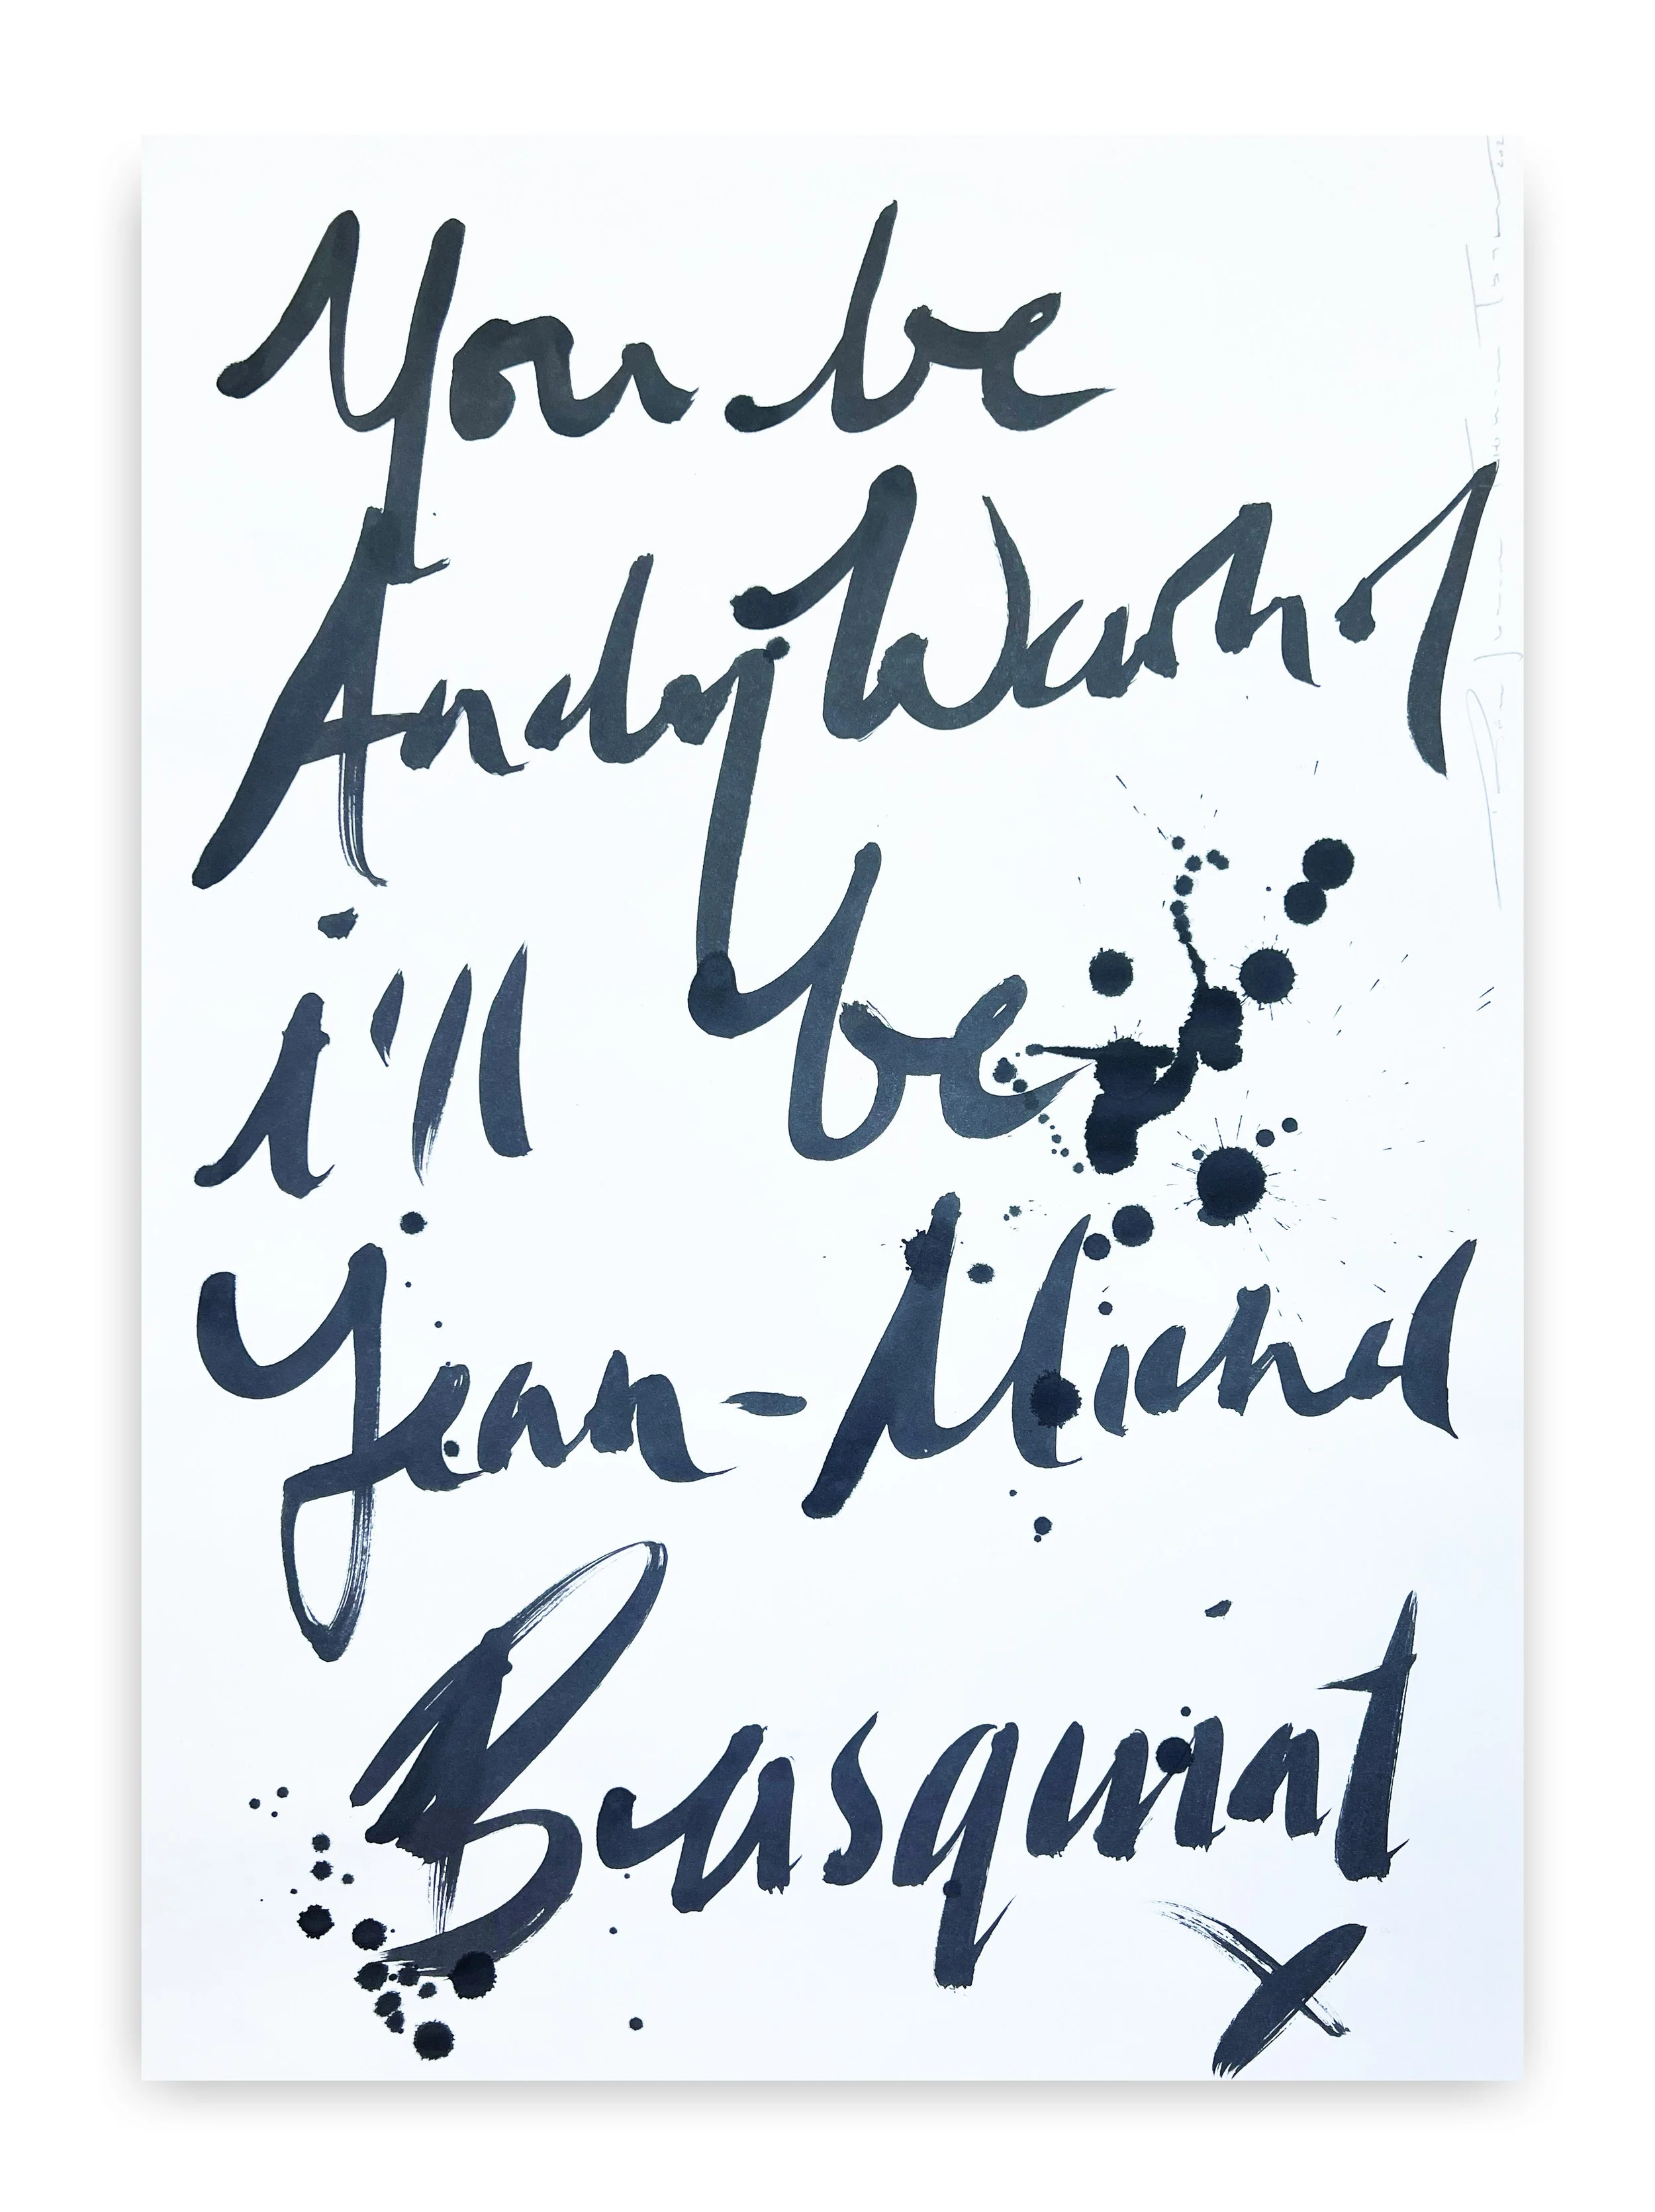 You be
Andy Warhol
i'll be
Jean-Michel
Basquiat
x